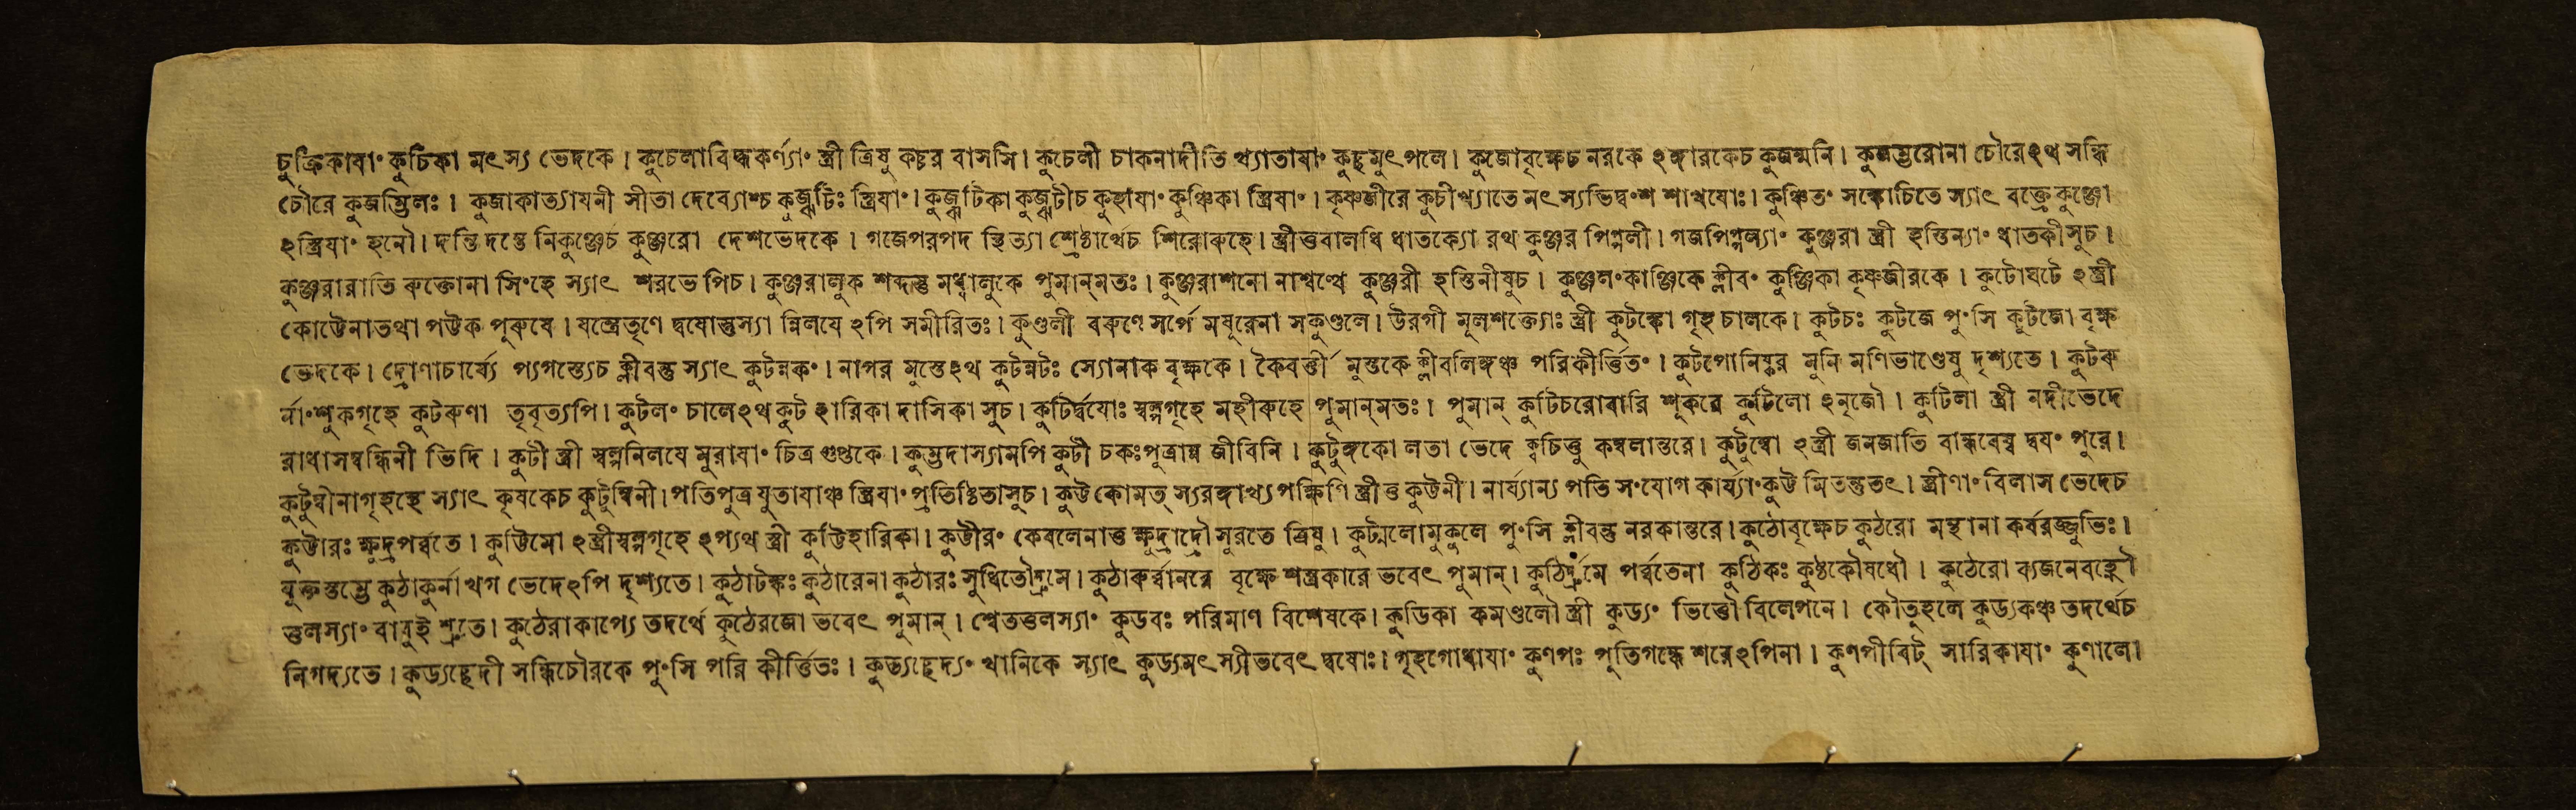 চুক্রিকাযা° কুচিকা মৎস্য ভেদকে। কুচেলাবিদ্ধকর্ণ্যা° স্ত্রী ত্রিষু কচ্চর বাসসি। কুচেলী চাকনাদীতি খ্যাতাযা° কুচ্ছমুৎপলে। কুজোবৃক্ষেচ নরকে ঽঙ্গারকেচ কুজন্মনি। কুজম্ভরোনা চৌরেঽথ সন্ধি
চৌরে কুজম্ভিলঃ। কুজাকাত্যাযনী সীতা দেব্যোশ্চ কুজ্ঝটিঃ স্ত্রিযা°। কুজ্ঝটিকা কুজ্ঝটীচ কুহাযা° কুঞ্চিকা স্ত্রিযা°। কৃষ্ণজীরে কুচীখ্যাতে মৎস্যভিদ্ব°শ শাখযোঃ। কুঞ্চিত° সঙ্কোচিতে স্যাৎ বক্ত্রে কুঞ্জো
ঽস্ত্রিযা° হনৌ। দন্তি দন্তে নিকুঞ্জেচ কুঞ্জরো দেশভেদকে। গজেপরপদ স্থিত্যা শ্রেষ্ঠার্থেচ শিরোৰুহে। স্ত্রীত্তবালধি ধাতক্যো রথ কুঞ্জর পিপ্পলী। গজপিপ্পল্যা° কুঞ্জরা স্ত্রী হস্তিন্যা° ধাতকীসুচ।
কুঞ্জরারাতি ৰুক্তোনা সি°হে স্যাৎ শরভে পিচ। কুঞ্জরালুক শব্দস্তু মধ্বালুকে পুমান্মতঃ। কুঞ্জরাশনো নাশ্বত্থে কুঞ্জরী হস্তিনীষুচ। কুঞ্জল°কাঞ্জিকে ক্লীব° কুঞ্জিকা কৃষ্ণজীরকে। কুটোঘটে ঽস্ত্রী
কোট্টেনাতথা পট্টক পুৰুষে। যন্ত্রেতৃণে দ্বযোস্তুস্যা ন্নিলযে ঽপি সমীরিতঃ। কুণ্ডলী বৰুণে সর্পে মযূরেনা সকুণ্ডলে। উরগী মূলশক্ত্যোঃ স্ত্রী কুটঙ্কো গৃহ চালকে। কুটচঃ কুটজে পু°সি কুটজো বৃক্ষ
ভেদকে। দ্রোণাচার্য্যে প্যগস্ত্যেচ ক্লীবস্তু স্যাৎ কুটন্নক°। নাগর মুস্তেঽথ কুটন্নটঃ স্যোনাক বৃক্ষকে। কৈবর্ত্তী মুস্তকে ক্লীবলিঙ্গঞ্চ পরিকীর্ত্তিত°। কুটপোনিষ্কর মুনি মণিভাণ্ডেষু দৃশ্যতে। কুটৰু
র্না°শুকগৃহে কুটৰুণা তৃবৃত্যপি। কুটল° চালেঽথ কুট হারিকা দাসিকা সুচ। কুটির্দ্বযোঃ স্বল্পগৃহে মহীৰুহে পুমান্মতঃ। পুমান্ কুটিচরোবারি শূকরে কুটিলো ঽনৃজৌ। কুটিলা স্ত্রী নদীভেদে
রাধাসম্বন্ধিনী ভিদি। কুটী স্ত্রী স্বল্পনিলযে মুরাযা° চিত্র গুপ্তকে। কুম্ভদাস্যামপি কুটী চকঃপুত্রান্ন জীবিনি। কুটুঙ্গকো লতা ভেদে ক্বচিত্তু কম্বলান্তরে। কুটুম্বো ঽস্ত্রী জনজাতি বান্ধবেষু দ্বয° পুরে।
কুটুম্বীনাগৃহস্থে স্যাৎ কৃষকেচ কুটুম্বিনী। পতিপুত্র যুতাযাঞ্চ স্ত্রিযা° প্রতিষ্ঠিতাসুচ। কুট্ট কোমত্ স্যরঙ্গাখ্য পক্ষিণি স্ত্রীত্ত কুট্টনী। নার্য্যান্য পতি স°যোগ কার্য্যা°কুট্ট মিতন্তুতৎ। স্ত্রীণা° বিলাস ভেদেচ
কুট্টারঃ ক্ষুদ্রপর্ব্বতে। কুট্টিমো ঽস্ত্রীস্বল্পগৃহে ঽপ্যথ স্ত্রী কুট্টিহারিকা। কুট্টীর° কেবলেনাত্ত ক্ষুদ্রাদ্রৌ সুরতে ত্রিষু। কুট্মলোমুকুলে পু°সি ক্লীবন্তু নরকান্তরে। কুঠোবৃক্ষেচ কুঠরো মন্থানা কর্ষরজ্জুভিঃ।
যুক্তস্তম্ভে কুঠাকুর্না খগ ভেদেঽপি দৃশ্যতে। কুঠাটঙ্কঃ কুঠারেনা কুঠারঃ সুধিতৌদ্রুমে। কুঠাৰুর্ব্বানরে বৃক্ষে শস্ত্রকারে ভবেৎ পুমান্। কুঠির্দ্রুমে পর্ব্বতেনা কুঠিকঃ কুষ্ঠকৌষধৌ। কুঠেরো ব্যজনেবহ্নৌ
ত্তুলস্যা° বাবুই শ্রুতে। কুঠেরাকাপ্যে তদর্থে কুঠেরজো ভবেৎ পুমান্। শ্বেতত্তলস্যা° কুডবঃ পরিমাণ বিশেষকে। কুডিকা কমণ্ডলৌ স্ত্রী কুড্য° ভিত্তৌ বিলেপনে। কৌতূহলে কুড্যকঞ্চ তদর্থেচ
নিগদ্যতে। কুড্যচ্ছেদী সন্ধিচৌরকে পু°সি পরি কীর্ত্তিতঃ। কুড্যচ্ছেদ্য° খানিকে স্যাৎ কুড্যমৎস্যীভবেৎ দ্বযোঃ। গৃহগোধাযা° কুণপঃ পূতিগন্ধে শরেঽপিনা। কুণপীবিট্ সারিকাযা° কুণালো